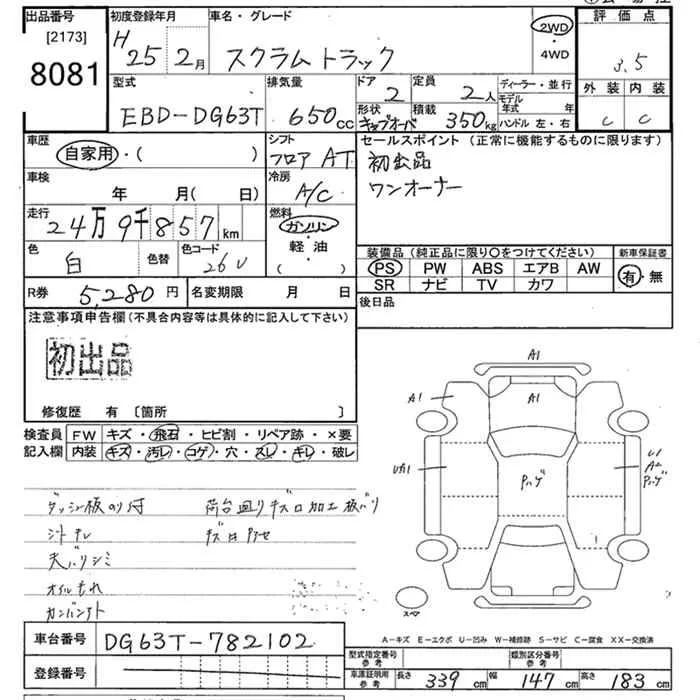 出品番号
[2173]
8081
初度登録年月
H 25年 2月
車名・グレード
スクラムトラック
2WD
・
4WD
評価点
3.5
外装 内装
C C
型式
EBD-DG63T
排気量
650cc
ドア
2
定員
2人
ディーラー・並行
モデル年式 年
ハンドル 左・右
形状
キャブオーバ
積載
350kg
車歴
自家用・( )
シフト
フロア AT
セールスポイント (正常に機能するものに限ります)
初出品
ワンオーナー
車検
年 月( )
冷房
A/C
走行
24万9千857km
燃料
ガソリン
・
軽・油
( )
色
白
色替
色コード
26U
装備品 (純正品に限り○をつけてください)
PS PW ABS エアB AW
SR ナビ TV カワ
新車保証書
有・無
R券 5,280円
名変期限 月 日
後日品
注意事項申告欄(不具合内容等は具体的に記入して下さい)
初出品
修復歴 有 〔箇所 〕
検査員記入欄
FW キズ・飛石・ヒビ割・リペア跡・×要
内装 キズ・汚レ・コゲ・穴・スレ・キレ・破レ
A1
A1
A1
Pハゲ
U1
A2
Pハゲ
ダッシュ板のり付
荷台回りキズ凹加工板バリ
シートキレ
天バリシミ
オイルもれ
スペア
A-キズ E-エクボ U-凹み W-補修跡 S-サビ C-腐食 XX-交換済
車台番号 DG63T-782102
登録番号
型式指定番号 参考
類別区分番号 参考
車庫証明用 参考
長さ 339cm 幅 147cm 高さ 183cm